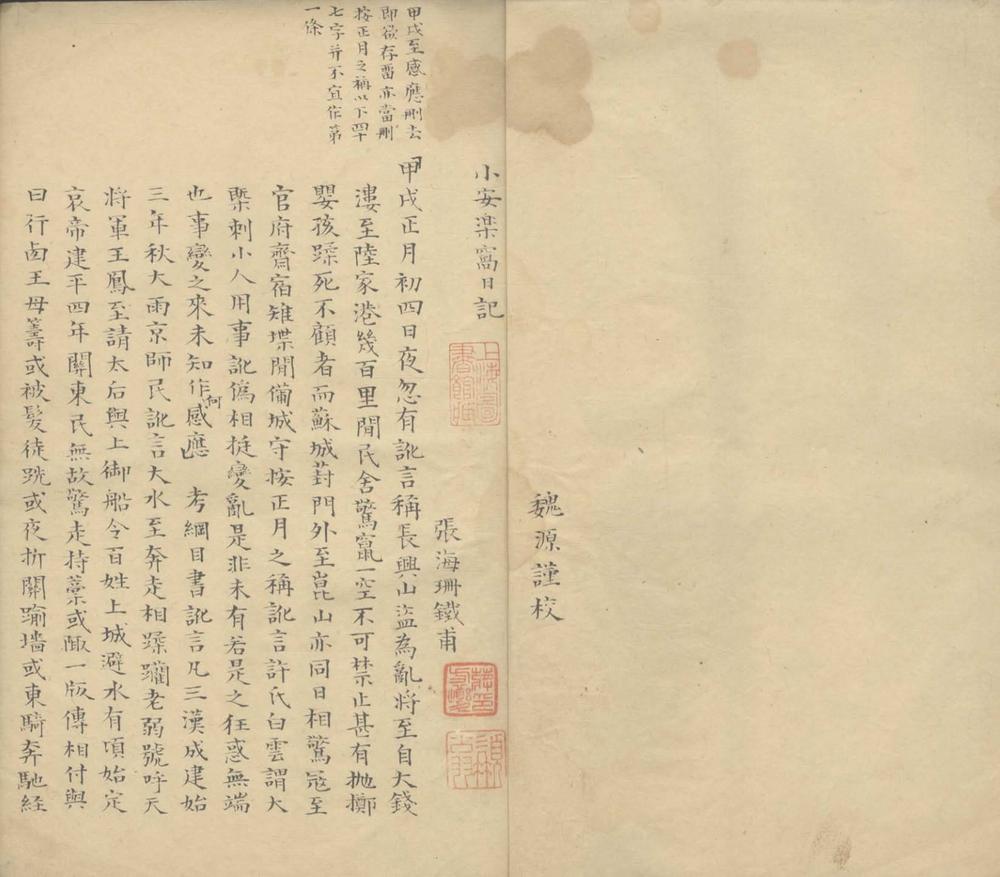 魏源謹校
小安楽窩日記
張海珊鐵甫
甲戌至感應刪去
即欲存畱亦當刪
按正月之稱以下四十
七字并不宜作第
一條
甲戌正月初四日夜忽有訛言稱長興山盜為亂將至自大錢
漊至陸家港幾百里間民舍驚竄一空不可禁止甚有抛擲
嬰孩蹂死不顧者而蘇城葑門外至崑山亦同日相驚寇至
官府齋宿雉堞間備城守按正月之稱訛言許氏白雲謂大
槩刺小人用事訛偽相挻變亂是非未有若是之狂惑無端
也事變之來未知作何感應 考綱目書訛言凡三漢成建始
三年秋大雨京師民訛言大水至奔走相蹂躪老弱號呼天
將軍王鳳至請太后與上御船令百姓上城避水有頃始定
哀帝建平四年關東民無故驚走持藁或掫一版傳相付與
曰行西王母籌或被髮徒跣或夜折關踰墻或東騎奔馳経
上海圖書館藏